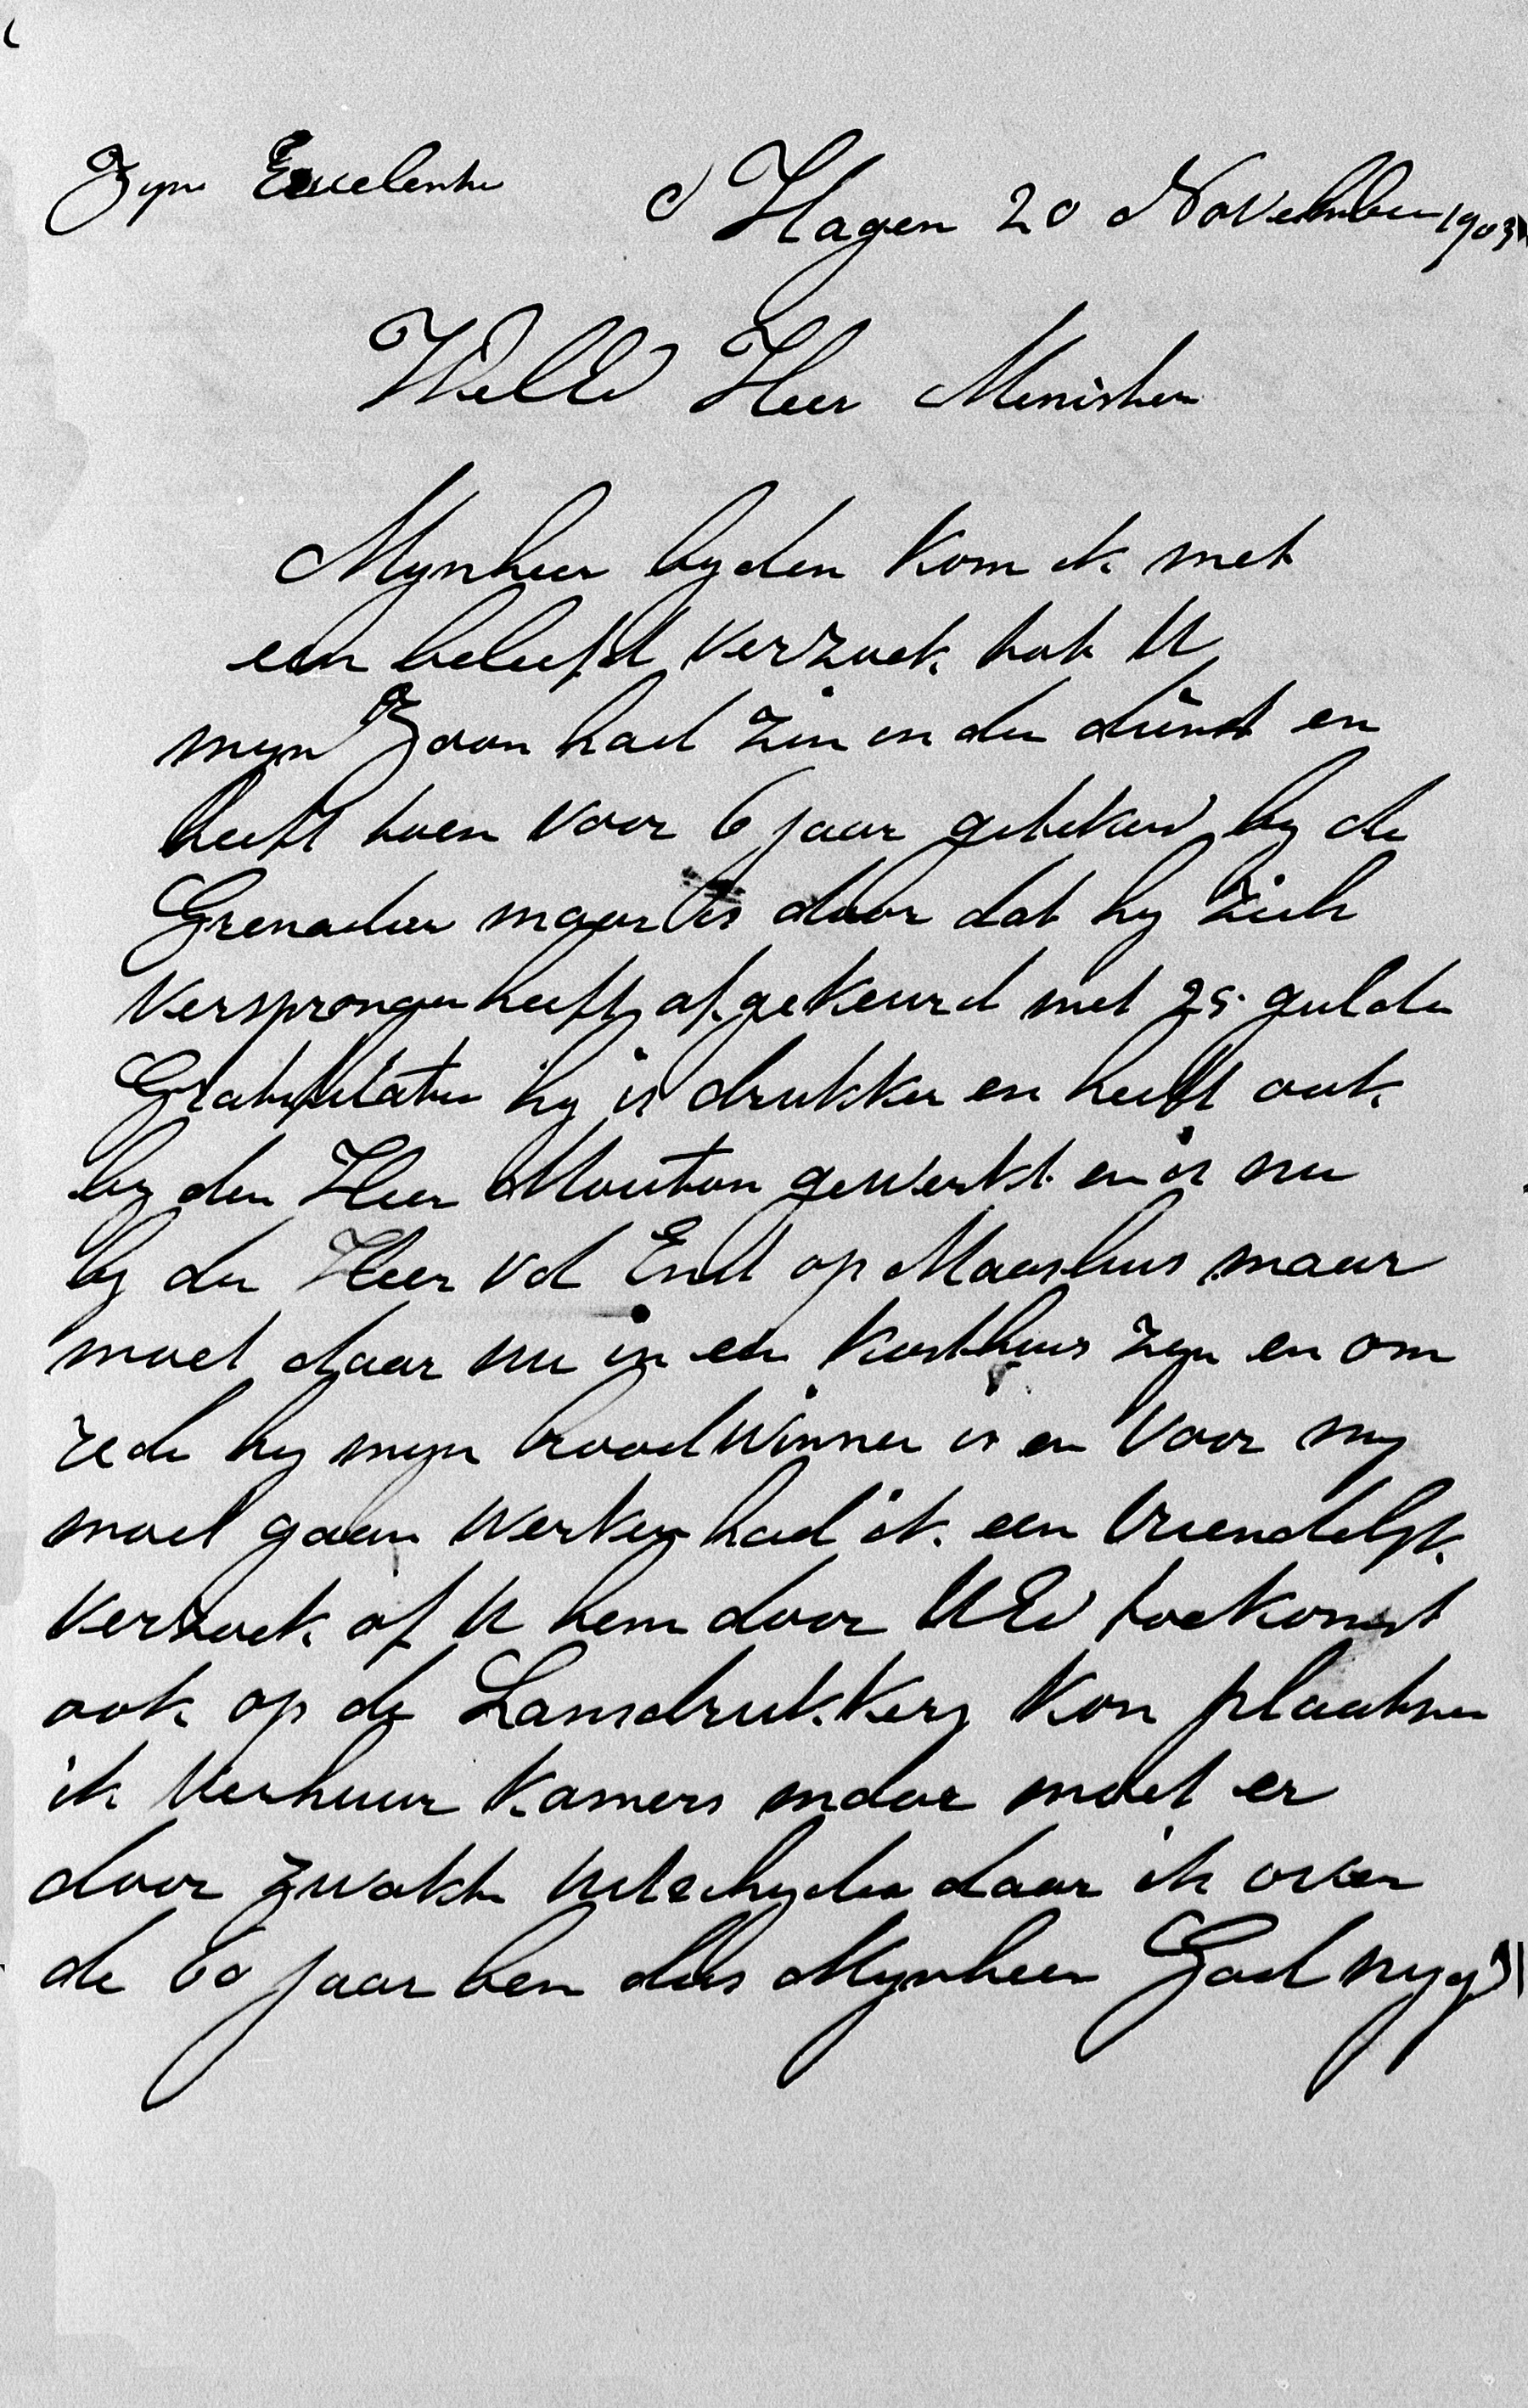 Zyne Exselentie
s Hagen 20 November 1903
WelEd Heer Minister
Mynheer byden kom ik met
een beleefd verzoek tot U
myn Zoon had zin in den dienst en
heeft toen voor 6 jaar geteken by de
Grenadier maar is door dat hy zich
versprongen heeft afgekeurd met 25 gulde
Gratifikatie hy is drukker en heeft ook
by den Heer Mouton gewerkt en is nu
by den Heer vd Endt op Maasluis maar
moet daar nu in een kosthuis zyn en om
rede hy myn broodwinner is en voor my
moet gaan werken had ik een vriendelyk
verzoek of U hem door UEd toekomst
ook op de Lansdrukkery kon plaatsen
ik verhuur kamers maar moet er
door zwakte uitschyden daar ik over
de 60 jaar ben dus Mynheer God